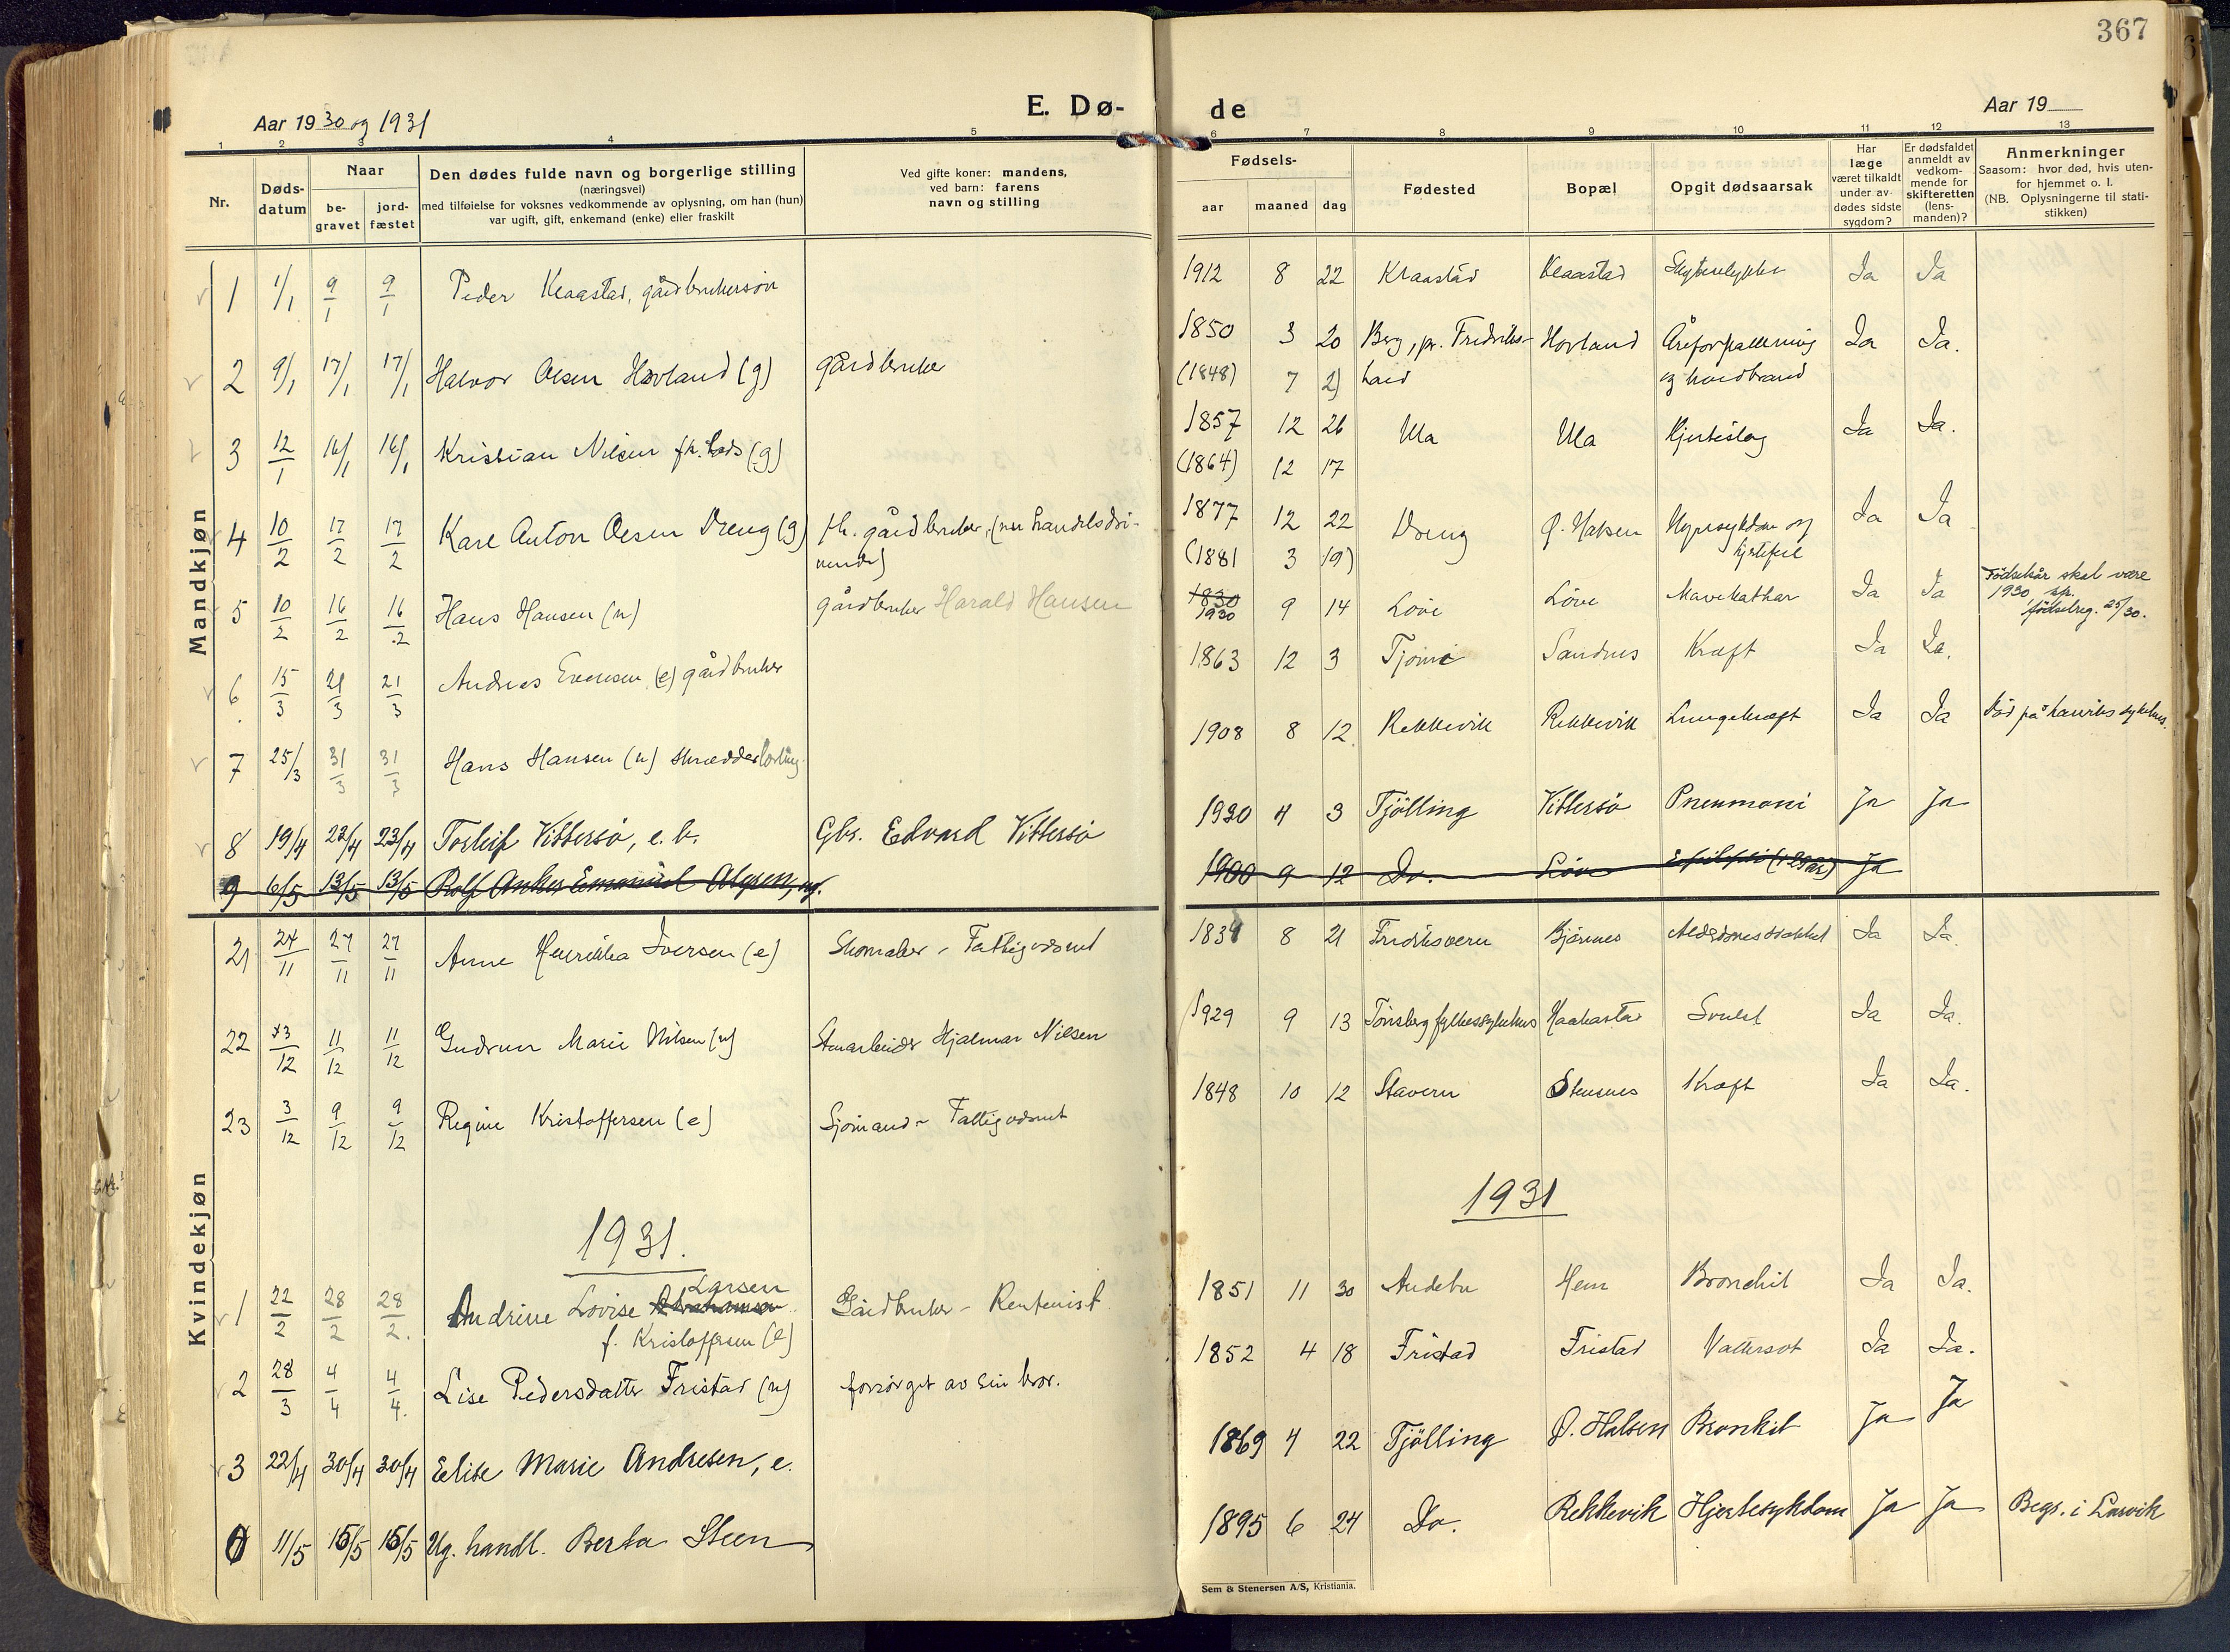 367
Aar 1930 og 1931
E. Dø-
de
Aar 19
1 2 3 4 5 6 7 8 9 10 11 12 13
Nr.
Døds-
datum
Naar
be-
gravet
jord-
fæstet
Den dødes fulde navn og borgerlige stilling
(næringsvei)
med tilføielse for voksnes vedkommende av oplysning, om han (hun)
var ugift, gift, enkemand (enke) eller fraskilt
Ved gifte koner: mandens,
ved barn: farens
navn og stilling
Fødsels-
aar maaned dag
Fødested
Bopæl
Opgit dødsaarsak
Har
læge
været tilkaldt
under av-
dødes sidste
sygdom?
Er dødsfaldet
anmeldt av
vedkom-
mende for
skifteretten
(lens-
manden)?
Anmerkninger
Saasom: hvor død, hvis uten-
for hjemmet o. l.
(NB. Oplysningerne til stati-
stikken)
Mandkjøn
1 1/1 9/1 9/1 Peder Klaastad, gårdbrukersøn 1912 8 22 Klaastad Klaastad Ja Ja
2 9/1 17/1 17/1 Halvor Olsen Hovland (g) gårdbruker 1850 3 20 Berg, pr. Fredriks- Hovland Åreforkalkning Ja Ja.
(1848) 7 2) hald og koldbrand
3 12/1 16/1 16/1 Kristian Nilsen fh. lods (g) 1857 12 26 Ula Ula Hjerteslag Ja Ja.
(1864) 12 17
4 10/2 17/2 17/2 Karl Anton Olsen Vreng (g) fh. gårdbruker, (nu handelsdri- 1877 12 22 Vreng Ø. Halsen Nyresykdom og Ja Ja
vende) (1881 3 19) hjertefeil
5 10/2 16/2 16/2 Hans Hansen (u) gårdbruker Harald Hansen 1830 1930 9 14 Løve Løve Mavekathar Ja Ja Fødselsår skal være
1930 sp.
fødselreg. 25/30.
6 15/3 21/3 21/3 Andreas Evensen (e) gårdbruker 1863 12 3 Tjøme Sandnes Kræft Ja Ja.
7 25/3 31/3 31/3 Hans Hansen (u) skrædderlærling 1908 8 12 Rekkevik Rekkevik Lungekræft Ja Ja Død på Larviks sykehus.
8 19/4 23/4 23/4 Torleif Vittersø, e. b. Gbr. Edvard Vittersø 1930 4 3 Tjølling Vittersø Pneumoni Ja Ja
9 6/5 13/5 13/5 Rolf Anker Emanuel 1900 9 12 Do. Løve Ja
Kvindekjøn
21 24/11 27/11 27/11 Anne Henrikka Iversen (e) Skomaker - Fattigvæsnet 1834 8 21 Fredriksvern Bjønnes Ja Ja.
22 3/12 11/12 11/12 Gudrun Marie Nilsen (u) Stenarbeider Hjalmar Nilsen 1929 9 13 Tønsberg fylkessykehus Svulst Ja Ja.
23 3/12 9/12 9/12 Regine Kristoffersen (e) Sjømand - Fattigvæsnet 1848 10 12 Stavern Stensnes Kræft Ja Ja.
1931.
1931
Larsen
1 22/2 28/2 28/2. Andrine Lovise Abrahamsen Gårdbruker - Rentenist. 1851 11 30 Andebu Hem Bronchit Ja Ja.
f. Kristoffersen (e)
2 28/3 4/4 4/4. Lise Pedersdatter Fristad (u) forsørget av sin bror. 1852 4 18 Fristad Fristad Vattersot Ja Ja.
3 22/4 30/4 30/4 Elise Marie Andresen, e. 1869 4 22 Tjølling Ø. Halsen Bronkit Ja Ja
0 11/5 15/5 15/5 Ug. handl. Berta Steen 1895 6 24 Do. Rekkevik Hjertesykdom Ja Ja Begr. i Larvik
Sem & Stenersen A/S, Kristiania.